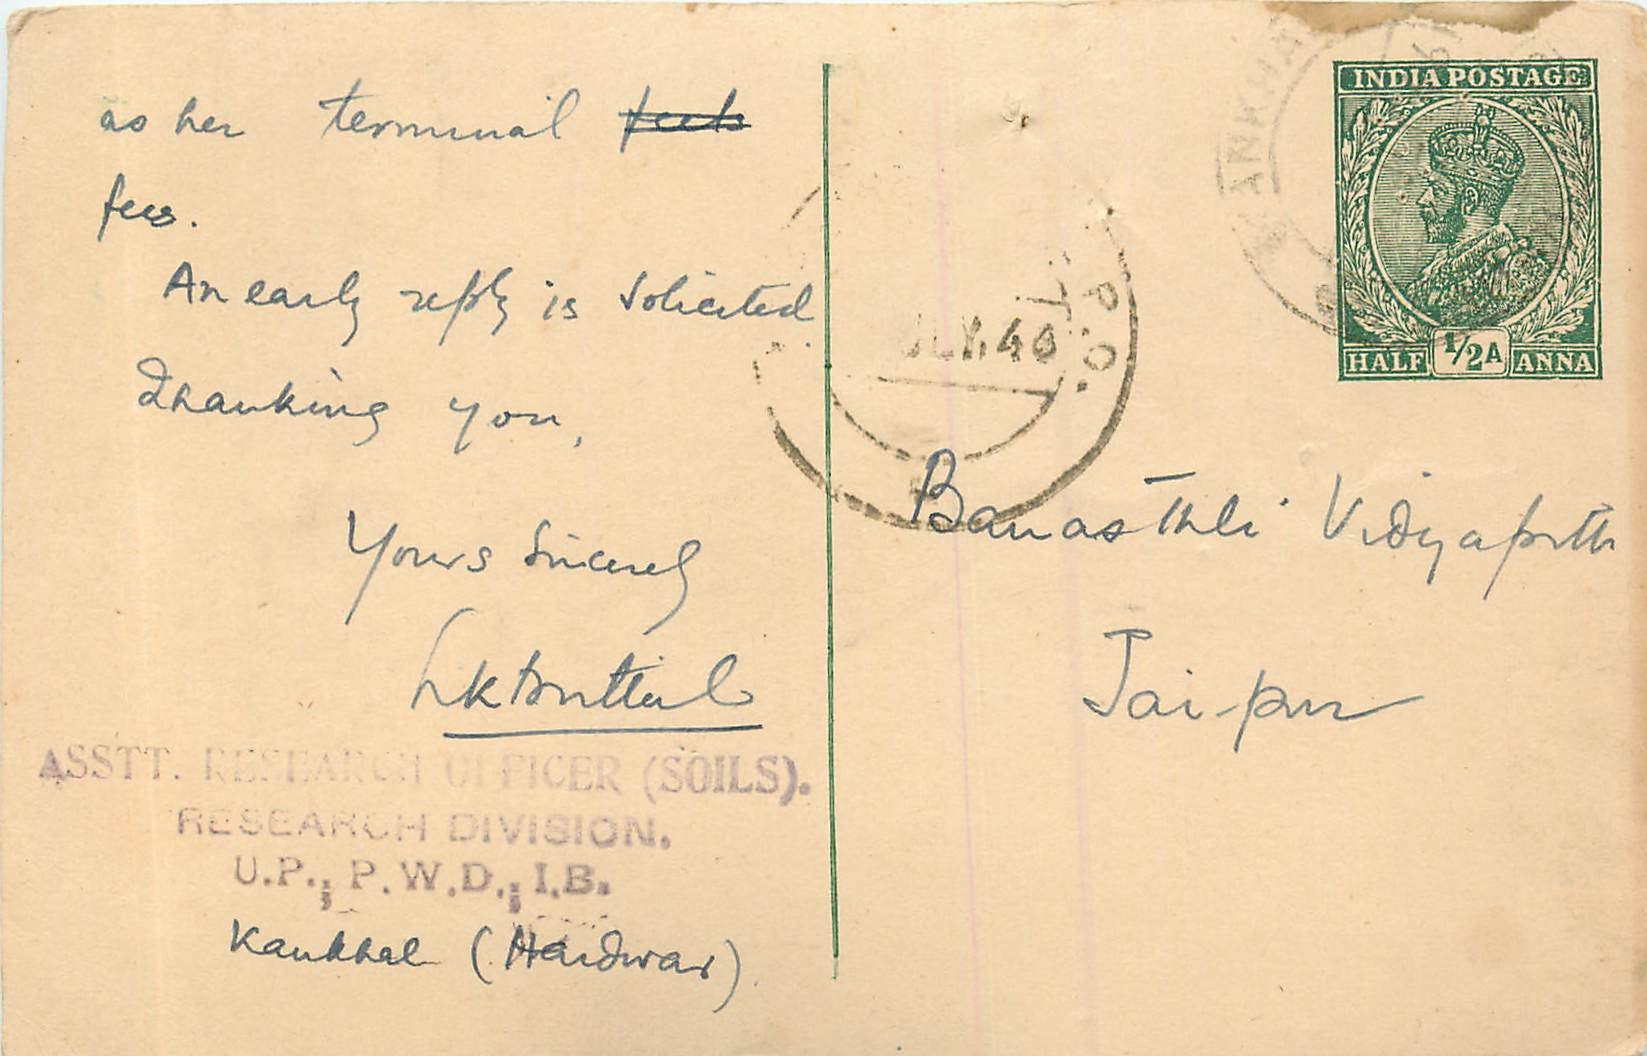 as her terminal
fees.
An early reply is solicited
Thanking you,
Yours Sincerely
ASSTT. RESEARCH OFFICER (SOILS).
RESEARCH DIVISION.
U.P., P.W.D., I.B.
Kankhal (Hardwar)
INDIA POSTAGE
HALF 1/2A ANNA
P.O.
JLY.40
Banasthli Vidyapith
Jai-pur